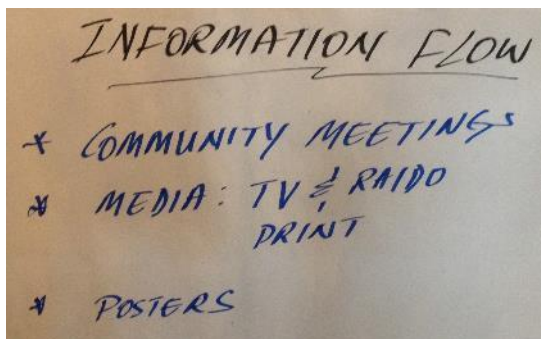 INFORMATION FLOW
* COMMUNITY MEETINGS
* MEDIA: TV & RAIDO
PRINT
* POSTERS